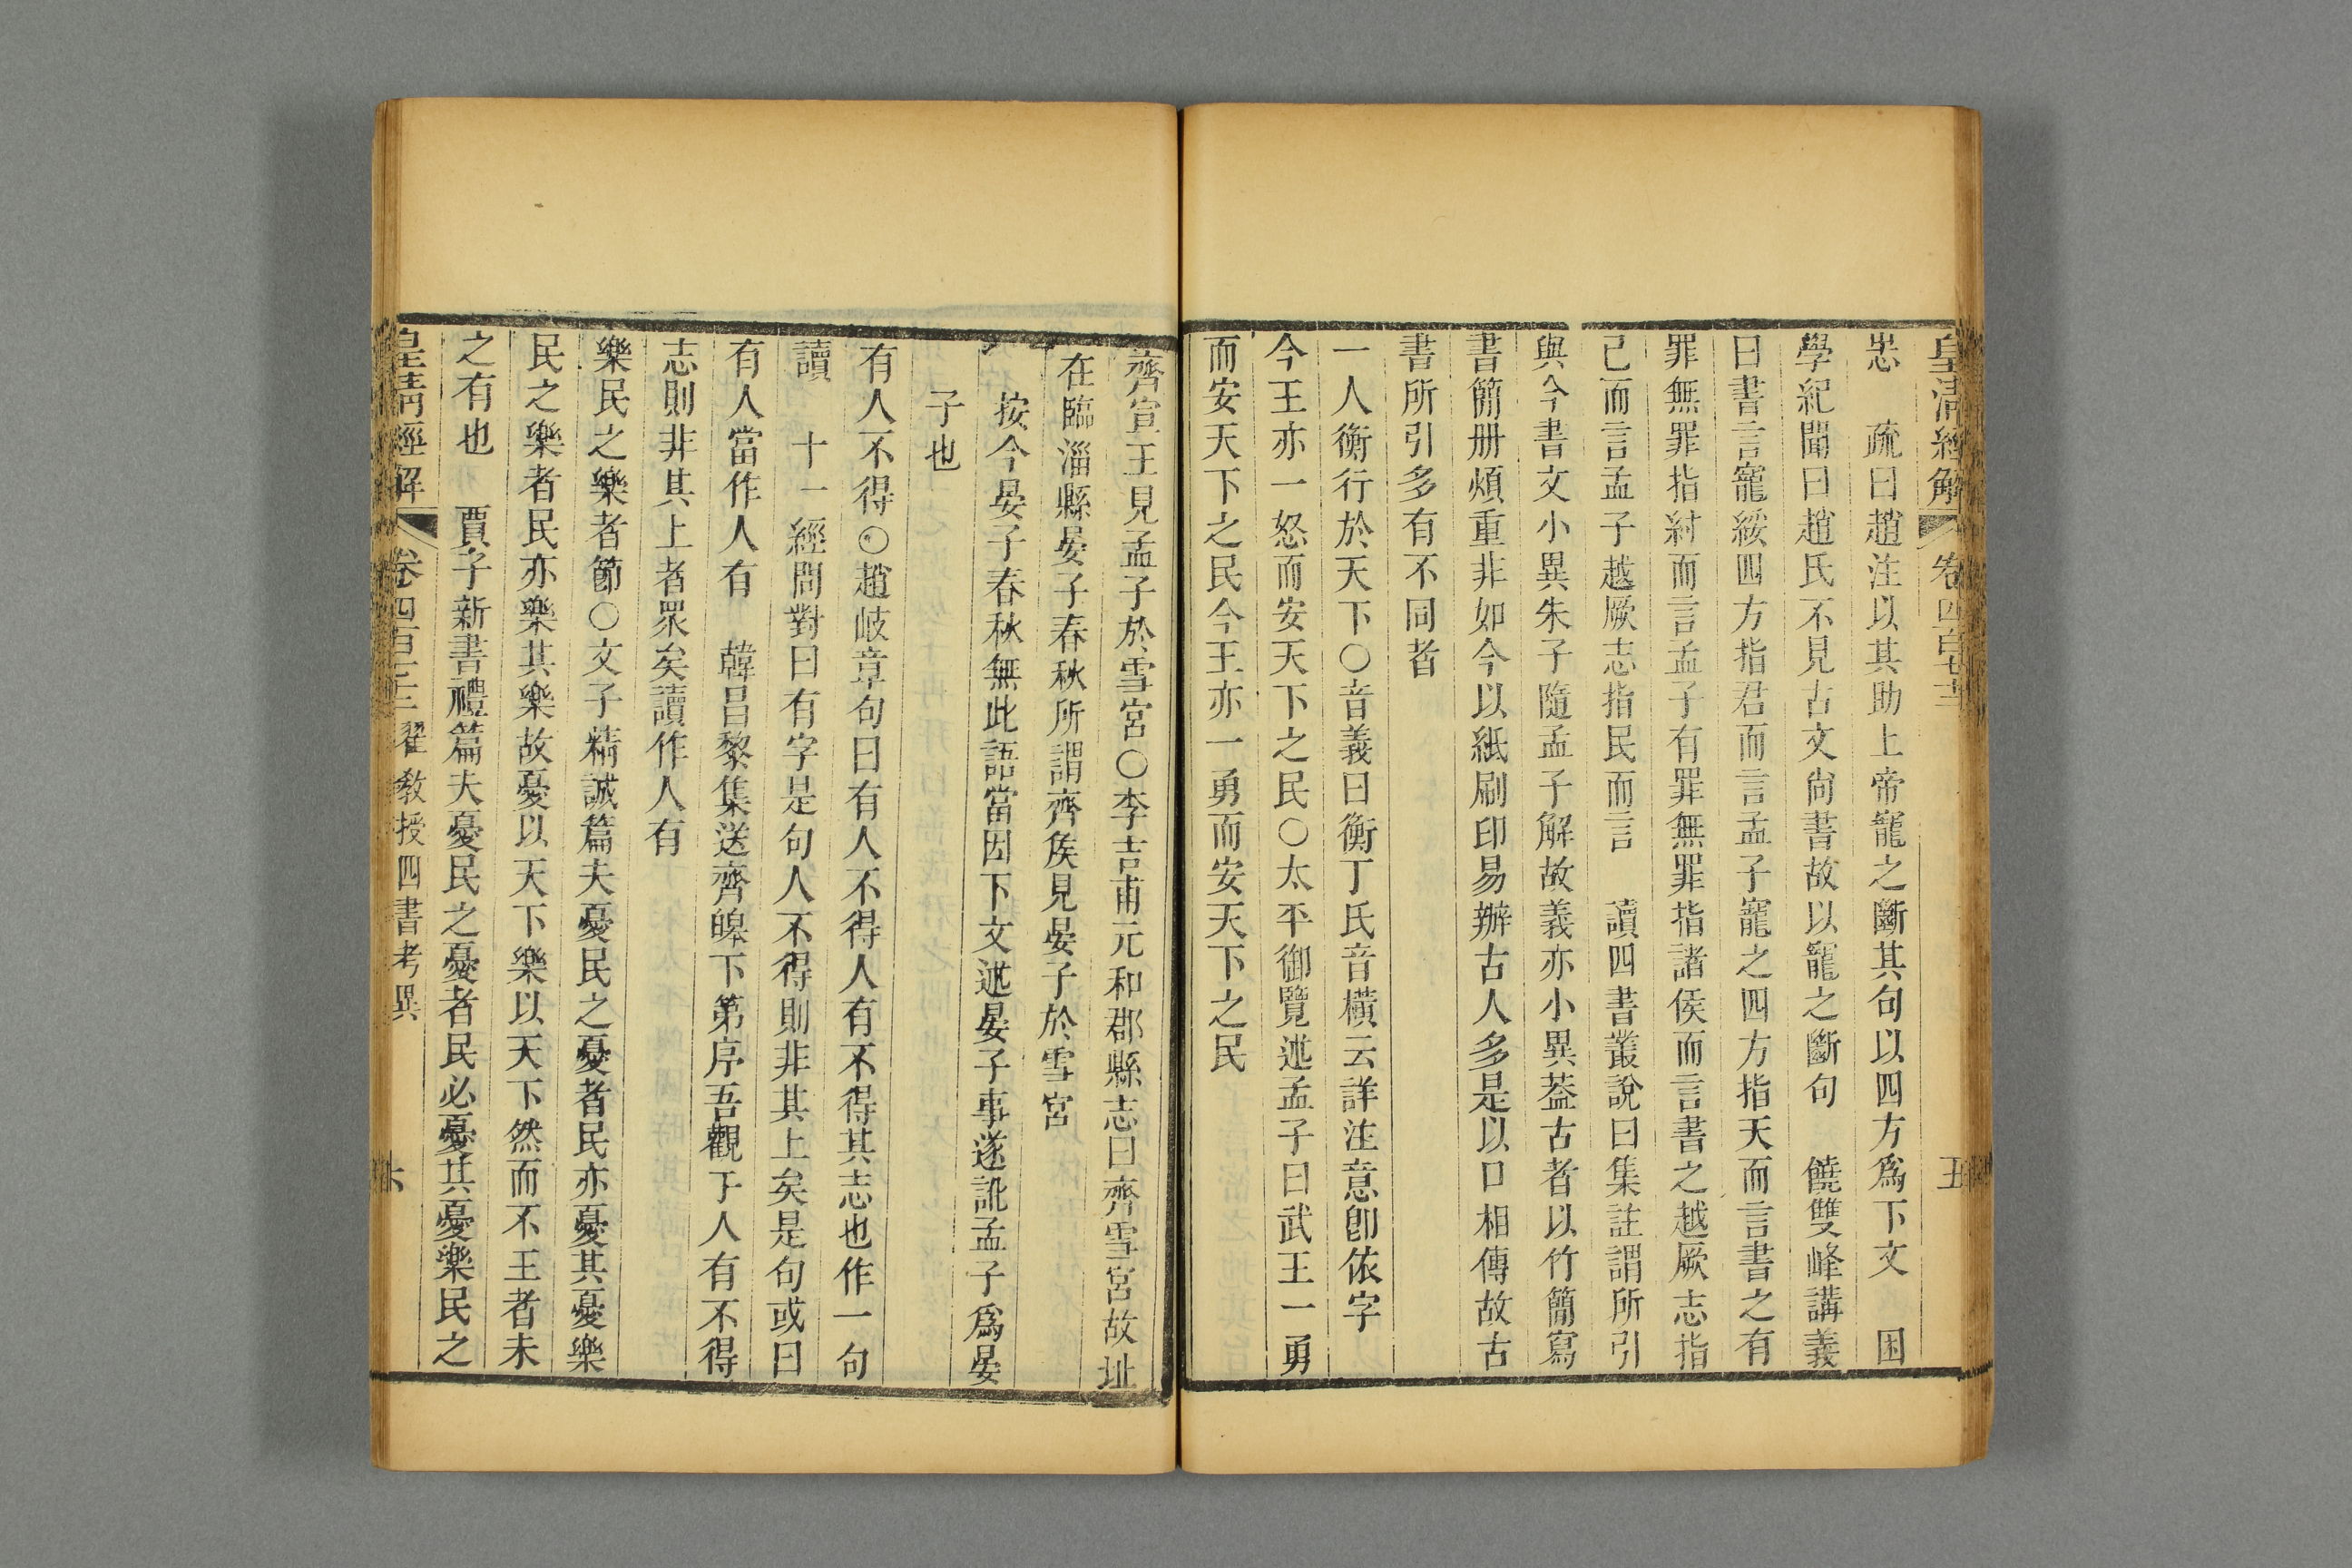 皇清經解 卷四百七十三 五
恙 疏曰趙注以其助上帝寵之斷其句以四方爲下文 困
學紀聞曰趙氏不見古文尙書故以寵之斷句 饒雙峰講義
曰書言寵綏四方指君而言孟子寵之四方指天而言書之有
罪無罪指紂而言孟子有罪無罪指諸侯而言書之越厥志指
已而言孟子越厥志指民而言 讀四書叢說曰集註謂所引
與今書文小異朱子隨孟子解故義亦小異葢古者以竹簡寫
書簡册煩重非如今以紙刷印易辦古人多是以口相傳故古
書所引多有不同者
一人衡行於天下○音義曰衡丁氏音橫云詳注意卽依字
今王亦一怒而安天下之民○太平御覽述孟子曰武王一勇
而安天下之民今王亦一勇而安天下之民
齊宣王見孟子於雪宮○李吉甫元和郡縣志曰齊雪宮故址
在臨淄縣晏子春秋所謂齊矦見晏子於雪宮
按今晏子春秋無此語當因下文述晏子事遂訛孟子爲晏
子也
有人不得○趙岐章句曰有人不得人有不得其志也作一句
讀 十一經問對曰有字是句人不得則非其上矣是句或曰
有人當作人有 韓昌黎集送齊皥下第序吾觀于人有不得
志則非其上者眾矣讀作人有
樂民之樂者節○文子精誠篇夫憂民之憂者民亦憂其憂樂
民之樂者民亦樂其樂故憂以天下樂以天下然而不王者未
之有也 賈子新書禮篇夫憂民之憂者民必憂其憂樂民之
皇清經解 卷四百七十三 翟敎授四書考異 六